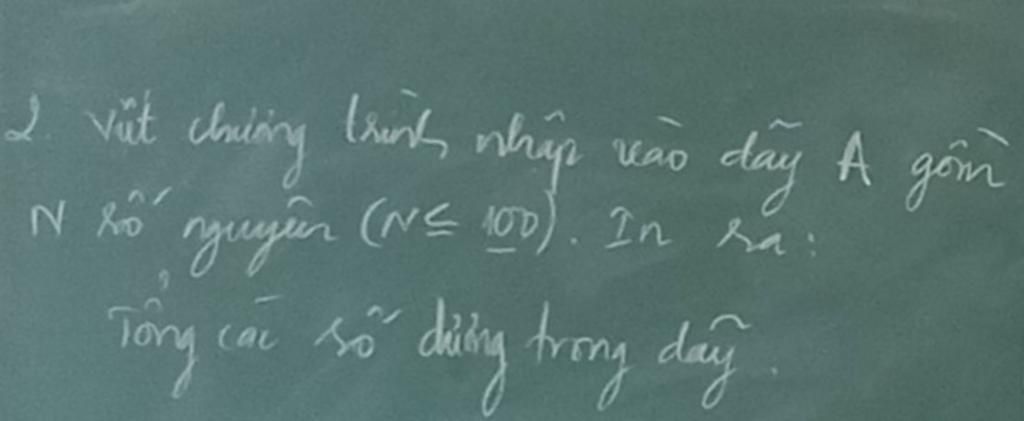 2. Viết chương trình nhập vào dãy A gồm
N số nguyên (N ≤ 100). In ra:
Tổng các số dương trong dãy.